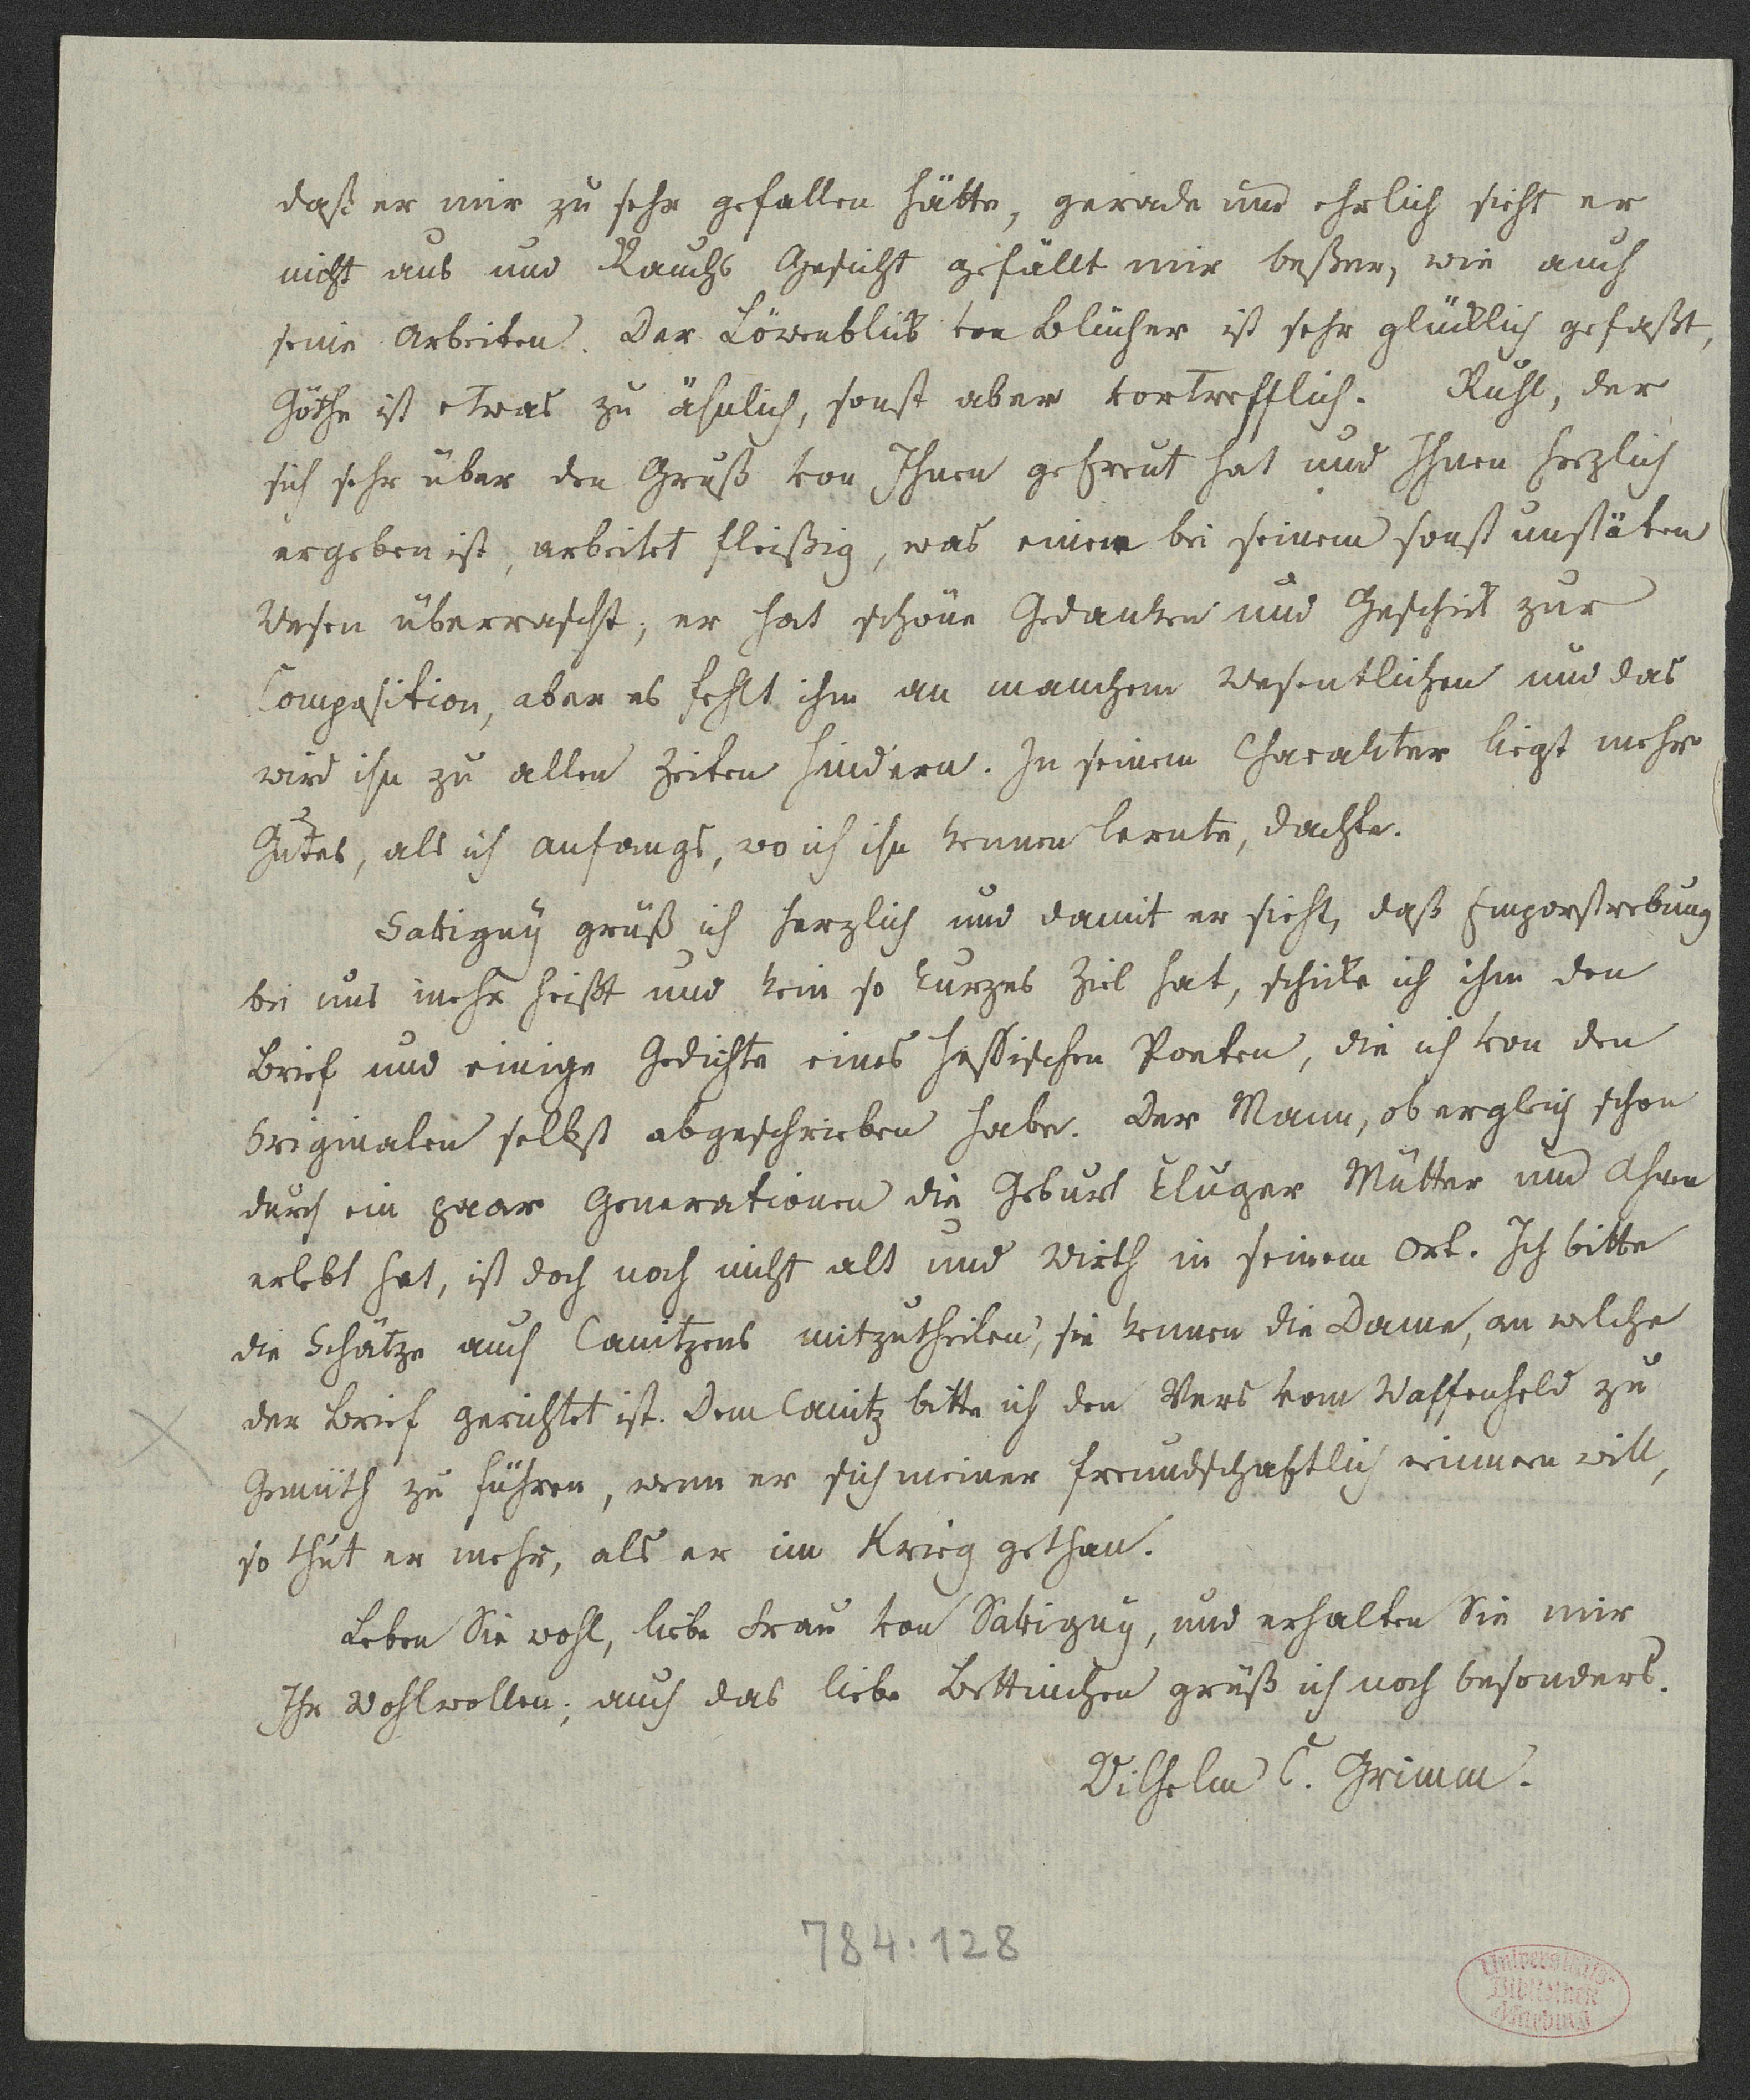 daß er mir zu sehr gefallen hätte, gerade und ehrlich sieht er
nicht aus und Rauchs Gesicht gefällt mir beßer, wie auch
seine Arbeiten. Der Löwenblick von Blücher ist sehr glücklich gefaßt,
Göthe ist etwas zu ähnlich, sonst aber vortrefflich. Ruhl, der
sich sehr über den Gruß von Ihnen gefreut hat und Ihnen herzlich
ergeben ist, arbeitet fleißig, was einen bei seinem sonst unstäten
Wesen überrascht; er hat schöne Gedanken und Geschick zur
Composition, aber es fehlt ihm an manchem Wesentlichen und das
wird ihn zu allen Zeiten hindern. In seinem Charakter liegt mehr
Gutes, als ich anfangs, wo ich ihn kennen lernte, dachte.
Savigny grüß ich herzlich und damit er sieht, daß Emporstrebung
bei uns mehr heißt und kein so kurzes Ziel hat, schicke ich ihm den
Brief und einige Gedichte eines hessischen Poeten, die ich von den
Originalen selbst abgeschrieben habe. Der Mann, ob er gleich schon
durch ein paar Generationen die Geburt kluger Mütter und Ahnen
erlebt hat, ist doch noch nicht alt und Wirth in seinem Ort. Ich bitte
die Schätze auch Canitzens mitzutheilen, sie kennen die Dame, an welche
der Brief gerichtet ist. Dem Canitz bitte ich den Vers vom Waffenheld zu
Gemüth zu führen, wenn er sich meiner freundschaftlich erinnern will,
so thut er mehr, als er im Krieg gethan.
Leben Sie wohl, liebe Frau von Savigny, und erhalten Sie mir
Ihr Wohlwollen; auch das liebe Bettinchen grüß ich noch besonders.
Wilhelm C. Grimm.
784:128
Universitäts-
Bibliothek
Marburg